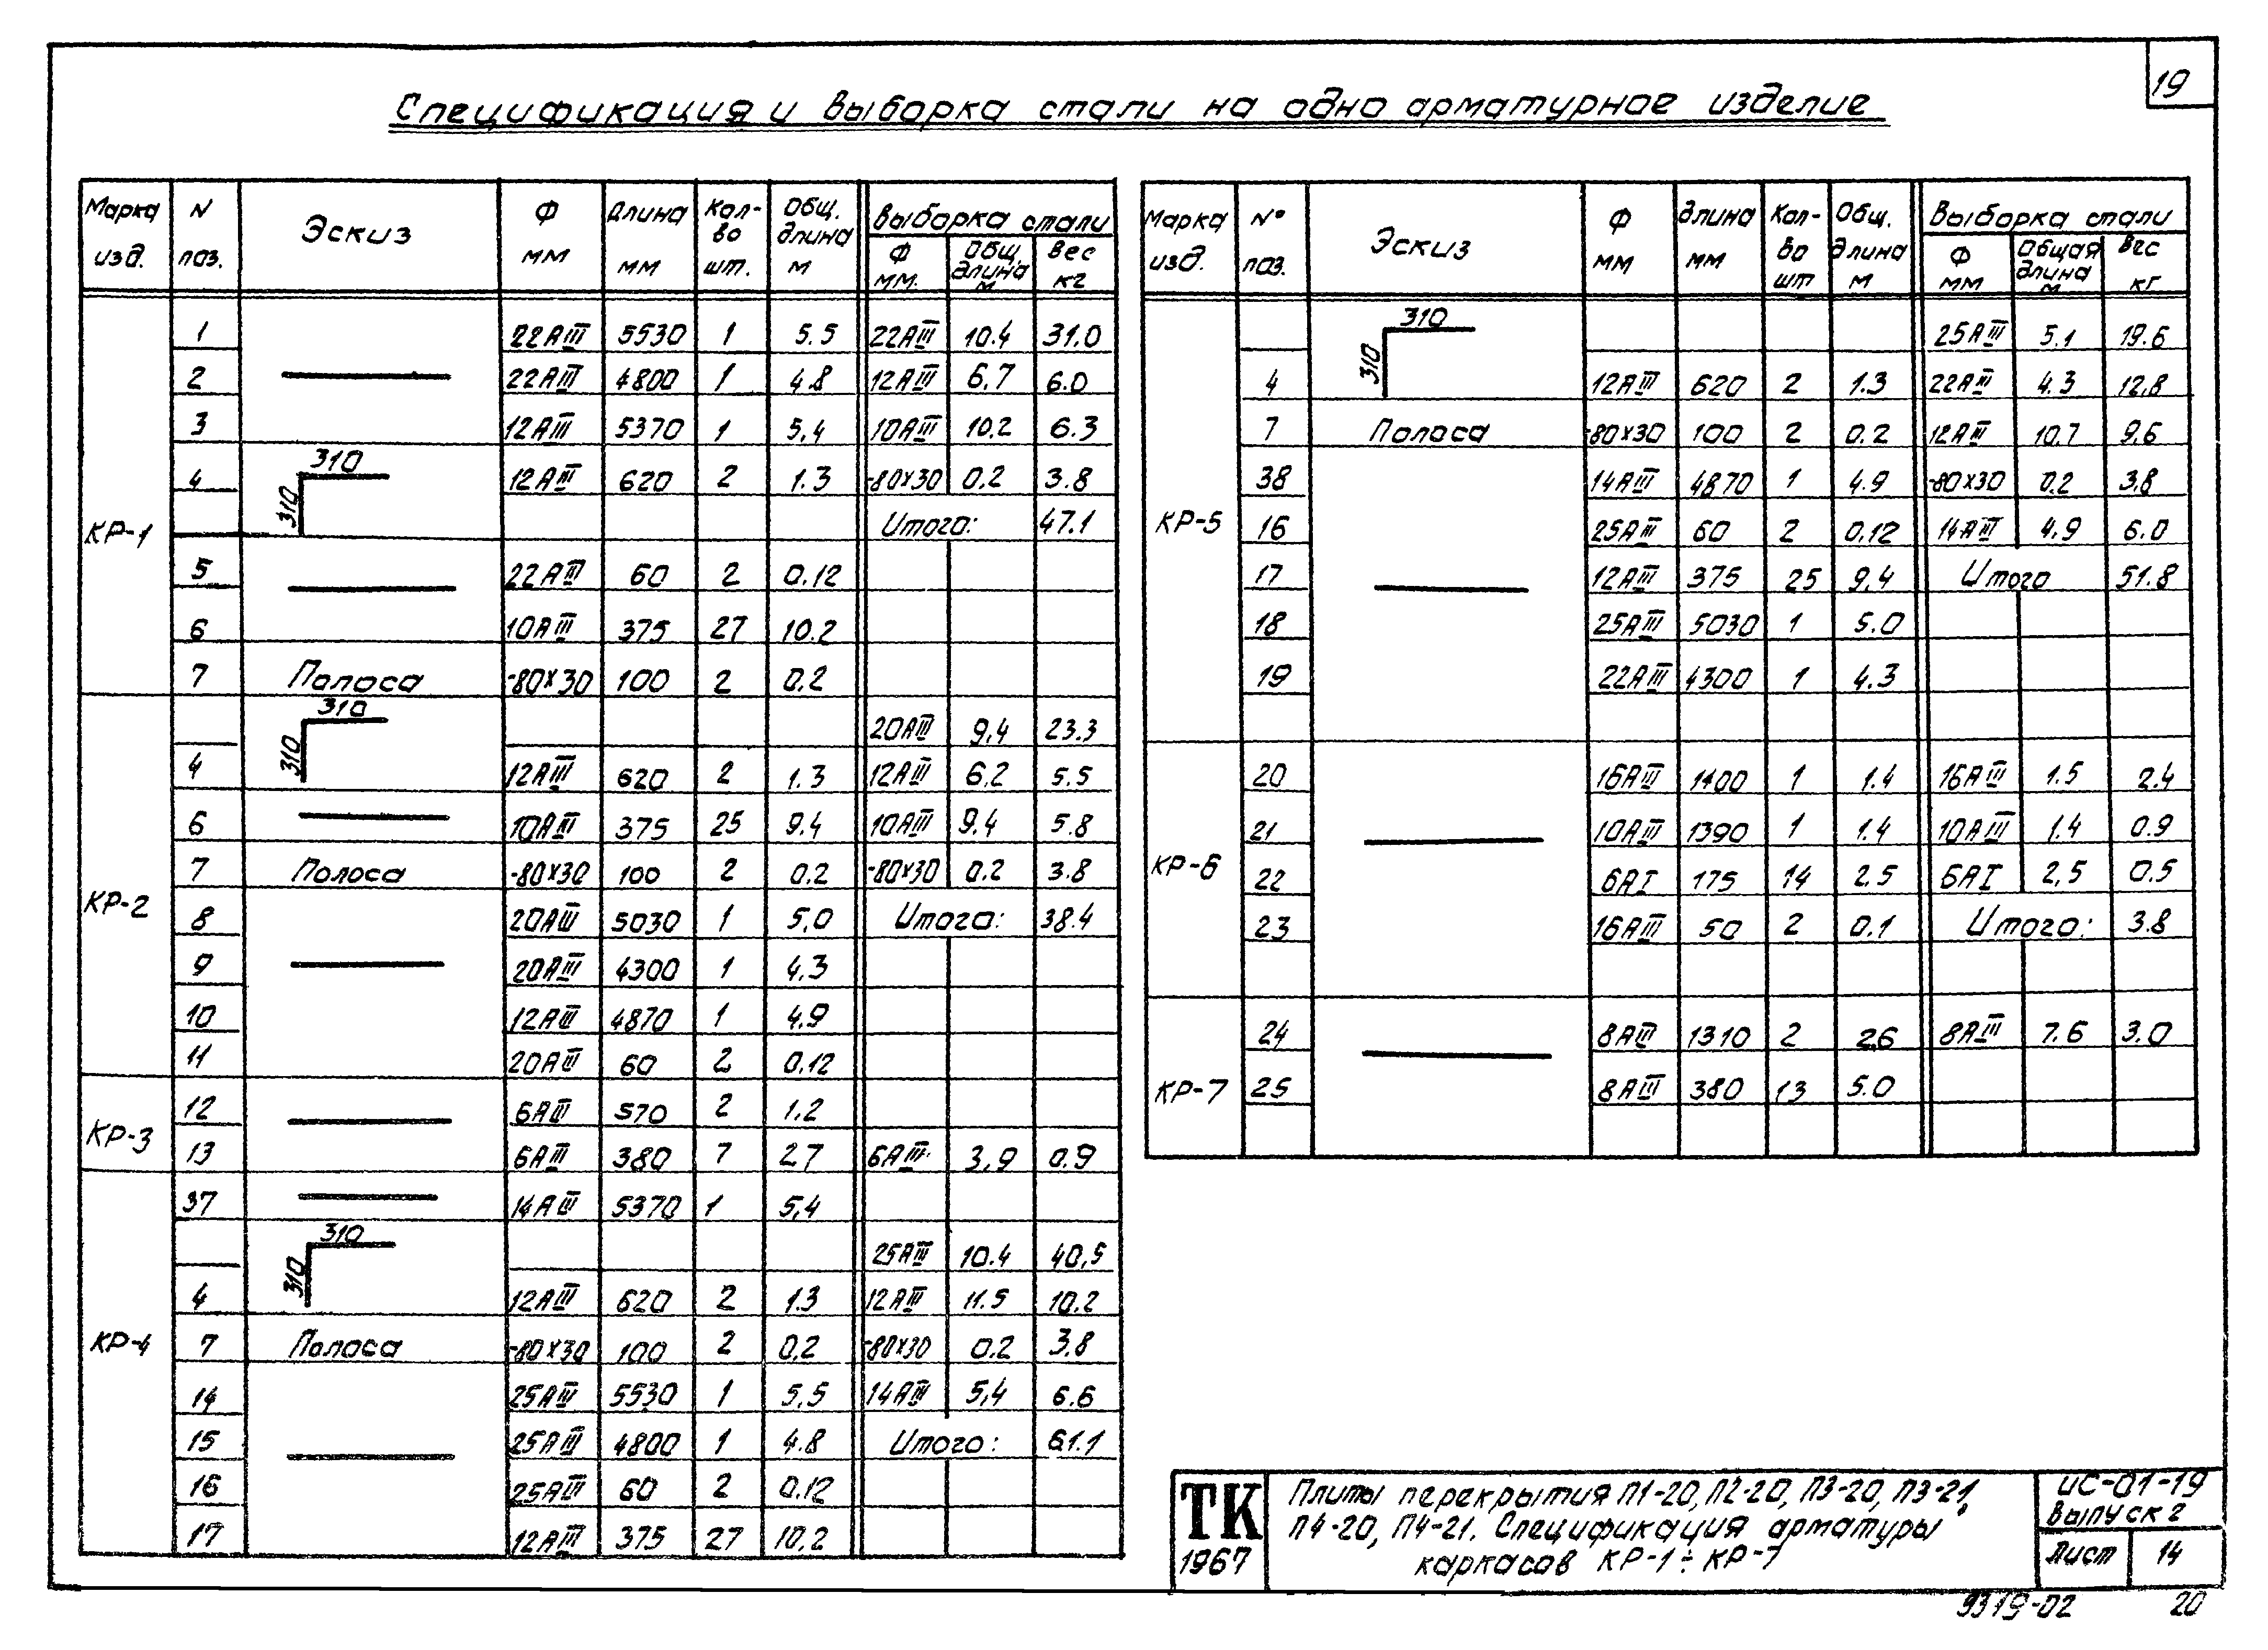 19
Спецификация и выборка стали на одно арматурное изделие
Марка изд. N поз. Эскиз Ф мм Длина мм Кол-во шт. Общ. длина м Выборка стали Ф мм. Общ. длина м Вес кг
КР-1
1 22АIII 5530 1 5.5 22АIII 10.4 31.0
2 22АIII 4800 1 4.8 12АIII 6.7 6.0
3 12АIII 5370 1 5.4 10АIII 10.2 6.3
4 310 310 12АIII 620 2 1.3 -80×30 0.2 3.8
Итого: 47.1
5 22АIII 60 2 0.12
6 10АIII 375 27 10.2
7 Полоса -80×30 100 2 0.2
КР-2
310 310 20АIII 9.4 23.3
4 12АIII 620 2 1.3 12АIII 6.2 5.5
6 10АIII 375 25 9.4 10АIII 9.4 5.8
7 Полоса -80×30 100 2 0.2 -80×30 0.2 3.8
8 20АIII 5030 1 5.0 Итого: 38.4
9 20АIII 4300 1 4.3
10 12АIII 4870 1 4.9
11 20АIII 60 2 0.12
КР-3
12 6АIII 570 2 1.2
13 6АIII 380 7 2.7 6АIII 3.9 0.9
КР-4
37 14АIII 5370 1 5.4
310 310 25АIII 10.4 40.5
4 12АIII 620 2 1.3 12АIII 11.5 10.2
7 Полоса -80×30 100 2 0.2 -80×30 0.2 3.8
14 25АIII 5530 1 5.5 14АIII 5.4 6.6
15 25АIII 4800 1 4.8 Итого: 61.1
16 25АIII 60 2 0.12
17 12АIII 375 27 10.2
Марка изд. N° поз. Эскиз Ф мм Длина мм Кол-во шт Общ. длина м Выборка стали Ф мм Общая длина м Вес кг
КР-5
310 310 25АIII 5.1 19.6
4 12АIII 620 2 1.3 22АIII 4.3 12.8
7 Полоса -80×30 100 2 0.2 12АIII 10.7 9.6
38 14АIII 4870 1 4.9 -80×30 0.2 3.8
16 25АIII 60 2 0.12 14АIII 4.9 6.0
17 12АIII 375 25 9.4 Итого 51.8
18 25АIII 5030 1 5.0
19 22АIII 4300 1 4.3
КР-6
20 16АIII 1400 1 1.4 16АIII 1.5 2.4
21 10АIII 1390 1 1.4 10АIII 1.4 0.9
22 6АI 175 14 2.5 6АI 2.5 0.5
23 16АIII 50 2 0.1 Итого: 3.8
КР-7
24 8АIII 1310 2 2.6 8АIII 7.6 3.0
25 8АIII 380 13 5.0
ТК
1967
Плиты перекрытия П1-20, П2-20, П3-20, П3-21,
П4-20, П4-21. Спецификация арматуры
каркасов КР-1÷КР-7
ИС-01-19
Выпуск 2
Лист 14
9319-02 20